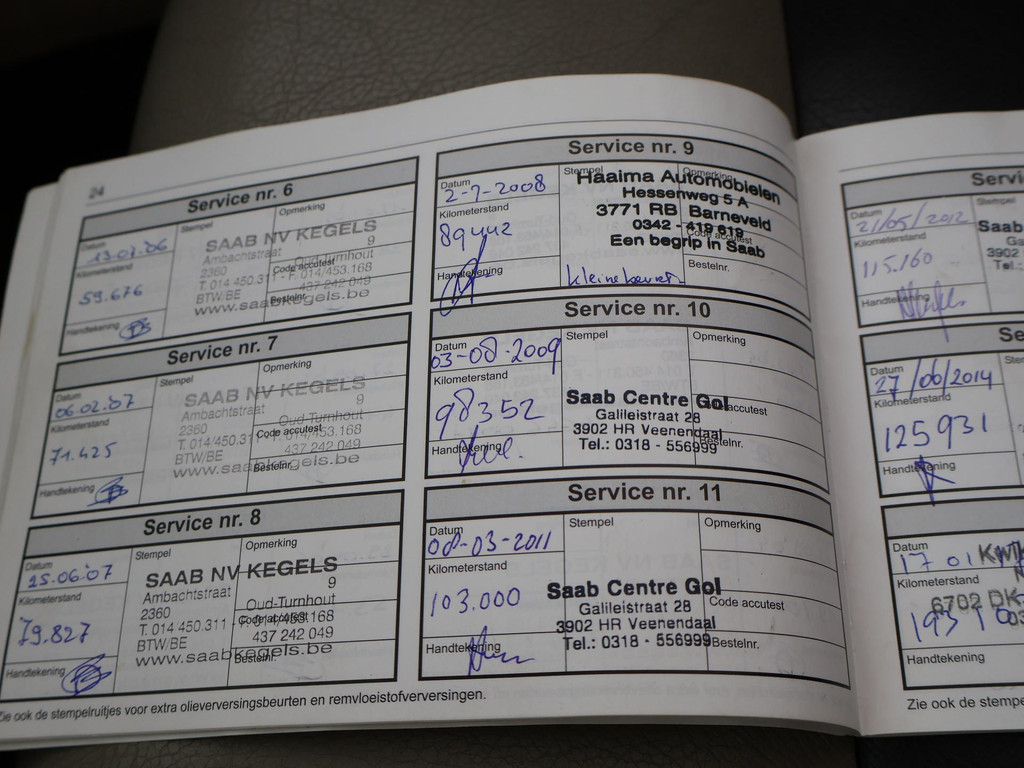 24
Service nr. 6
Datum
13.02.06
Stempel
Opmerking
SAAB NV KEGELS
Ambachtstraat 9
2360 Oud-Turnhout
T. 014 450.311 - F. 014/453.168
BTW/BE 437 242 049
www.saabkegels.be
Kilometerstand
59.676
Code accutest
Bestelnr.
Handtekening
Service nr. 7
Datum
06.02.07
Stempel
Opmerking
SAAB NV KEGELS
Ambachtstraat 9
2360 Oud-Turnhout
T. 014/450.311 - F. 014/453.168
BTW/BE 437 242 049
www.saabkegels.be
Kilometerstand
71.425
Code accutest
Bestelnr.
Handtekening
Service nr. 8
Datum
25.06.07
Stempel
Opmerking
SAAB NV KEGELS
Ambachtstraat 9
2360 Oud-Turnhout
T. 014 450.311 - F. 014/453.168
BTW/BE 437 242 049
www.saabkegels.be
Kilometerstand
79.827
Code accutest
Bestelnr.
Handtekening
Zie ook de stempelruitjes voor extra olieverversingsbeurten en remvloeistofverversingen.
Service nr. 9
Datum
2-7-2008
Stempel
Opmerking
Haaima Automobielen
Hessenweg 5 A
3771 RB Barneveld
0342 - 419 619
Een begrip in Saab
Kilometerstand
89442
Code accutest
Bestelnr.
Handtekening
kleine beurt
Service nr. 10
Datum
03-08-2009
Stempel
Opmerking
Kilometerstand
98352
Saab Centre Gol
Galileistraat 28
3902 HR Veenendaal
Tel.: 0318 - 556999
Code accutest
Bestelnr.
Handtekening
Service nr. 11
Datum
08-03-2011
Stempel
Opmerking
Kilometerstand
103.000
Saab Centre Gol
Galileistraat 28
3902 HR Veenendaal
Tel.: 0318 - 556999
Code accutest
Bestelnr.
Handtekening
Servi
Datum
21/05/2012
Saab
Ga
3902
Tel.:
Kilometerstand
115.160
Handtekening
Se
Datum
27/06/2014
Kilometerstand
125931
Handtekening
Datum
17 01
Kwi
6702 DK
Kilometerstand
Handtekening
Zie ook de stempe